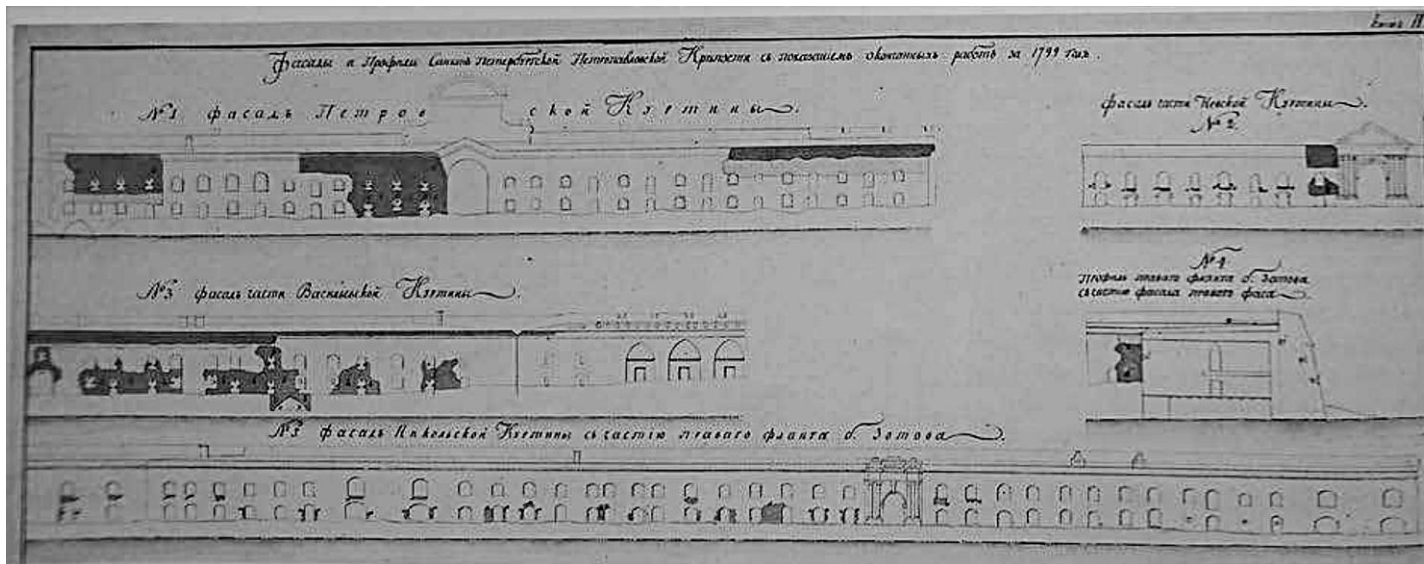 Фасады и Профили Санктъ Петербургской Петропавловской Крѣпости съ показанiемъ оконченныхъ работъ за 1799 годъ.
№ 1 фасадъ Петровской Куртины.
фасадъ части Невской Куртины.
№ 2
№ 3 фасадъ части Васильевской Куртины.
№ 4
Профиль праваго фланга б. Зотова
съ частiю фасада праваго фаса
№ 5 фасадъ Никольской Куртины съ частiю праваго фланга б. Зотова.